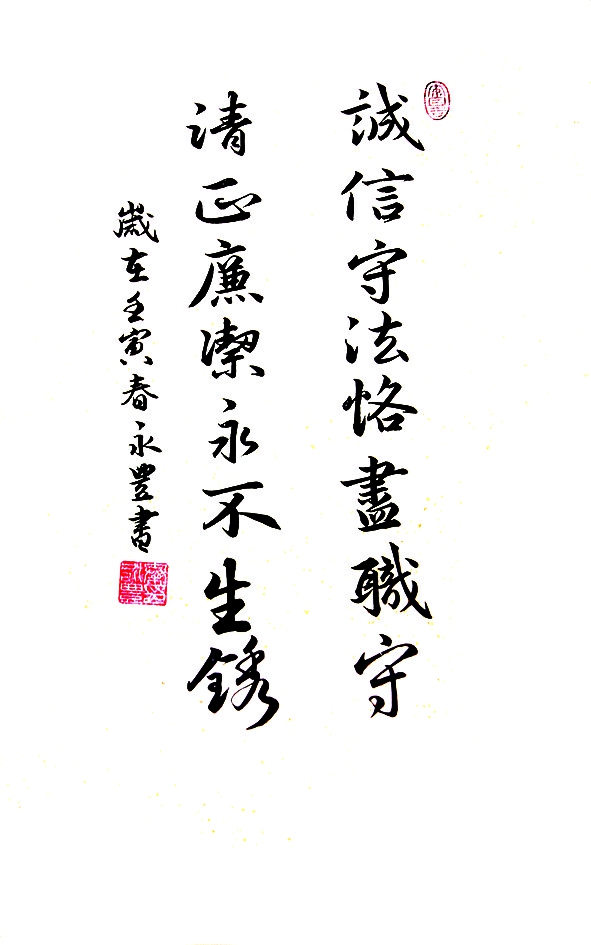 誠信守法恪盡職守
清正廉潔永不生銹
歲在壬寅春永豐書